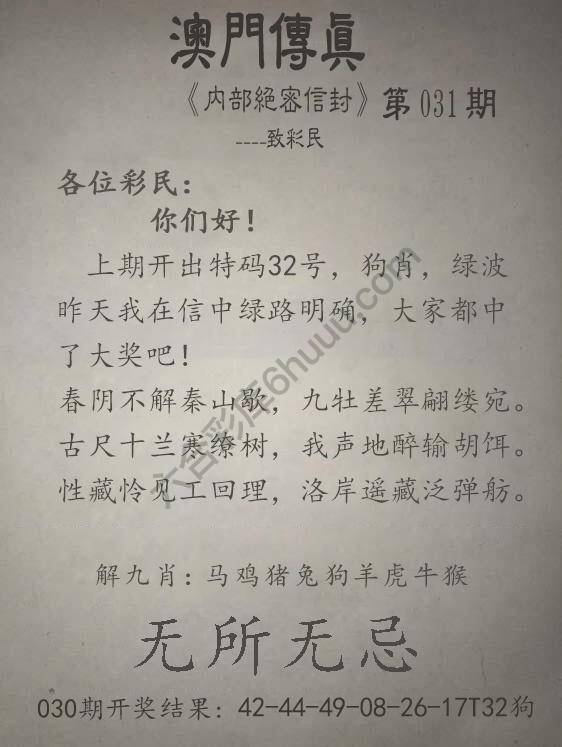 澳門傳眞
《内部絕密信封》第031期
----致彩民
各位彩民：
你们好！
上期开出特码32号，狗肖，绿波
昨天我在信中绿路明确，大家都中
了大奖吧！
春阴不解秦山歇，九牡差翠翩缕宛。
古尺十兰寒缭树，我声地醉输胡饵。
性藏怜见工回理，洛岸遥藏泛弹舫。
六合彩库6huuu.com
解九肖：马鸡猪兔狗羊虎牛猴
无所无忌
030期开奖结果：42-44-49-08-26-17T32狗